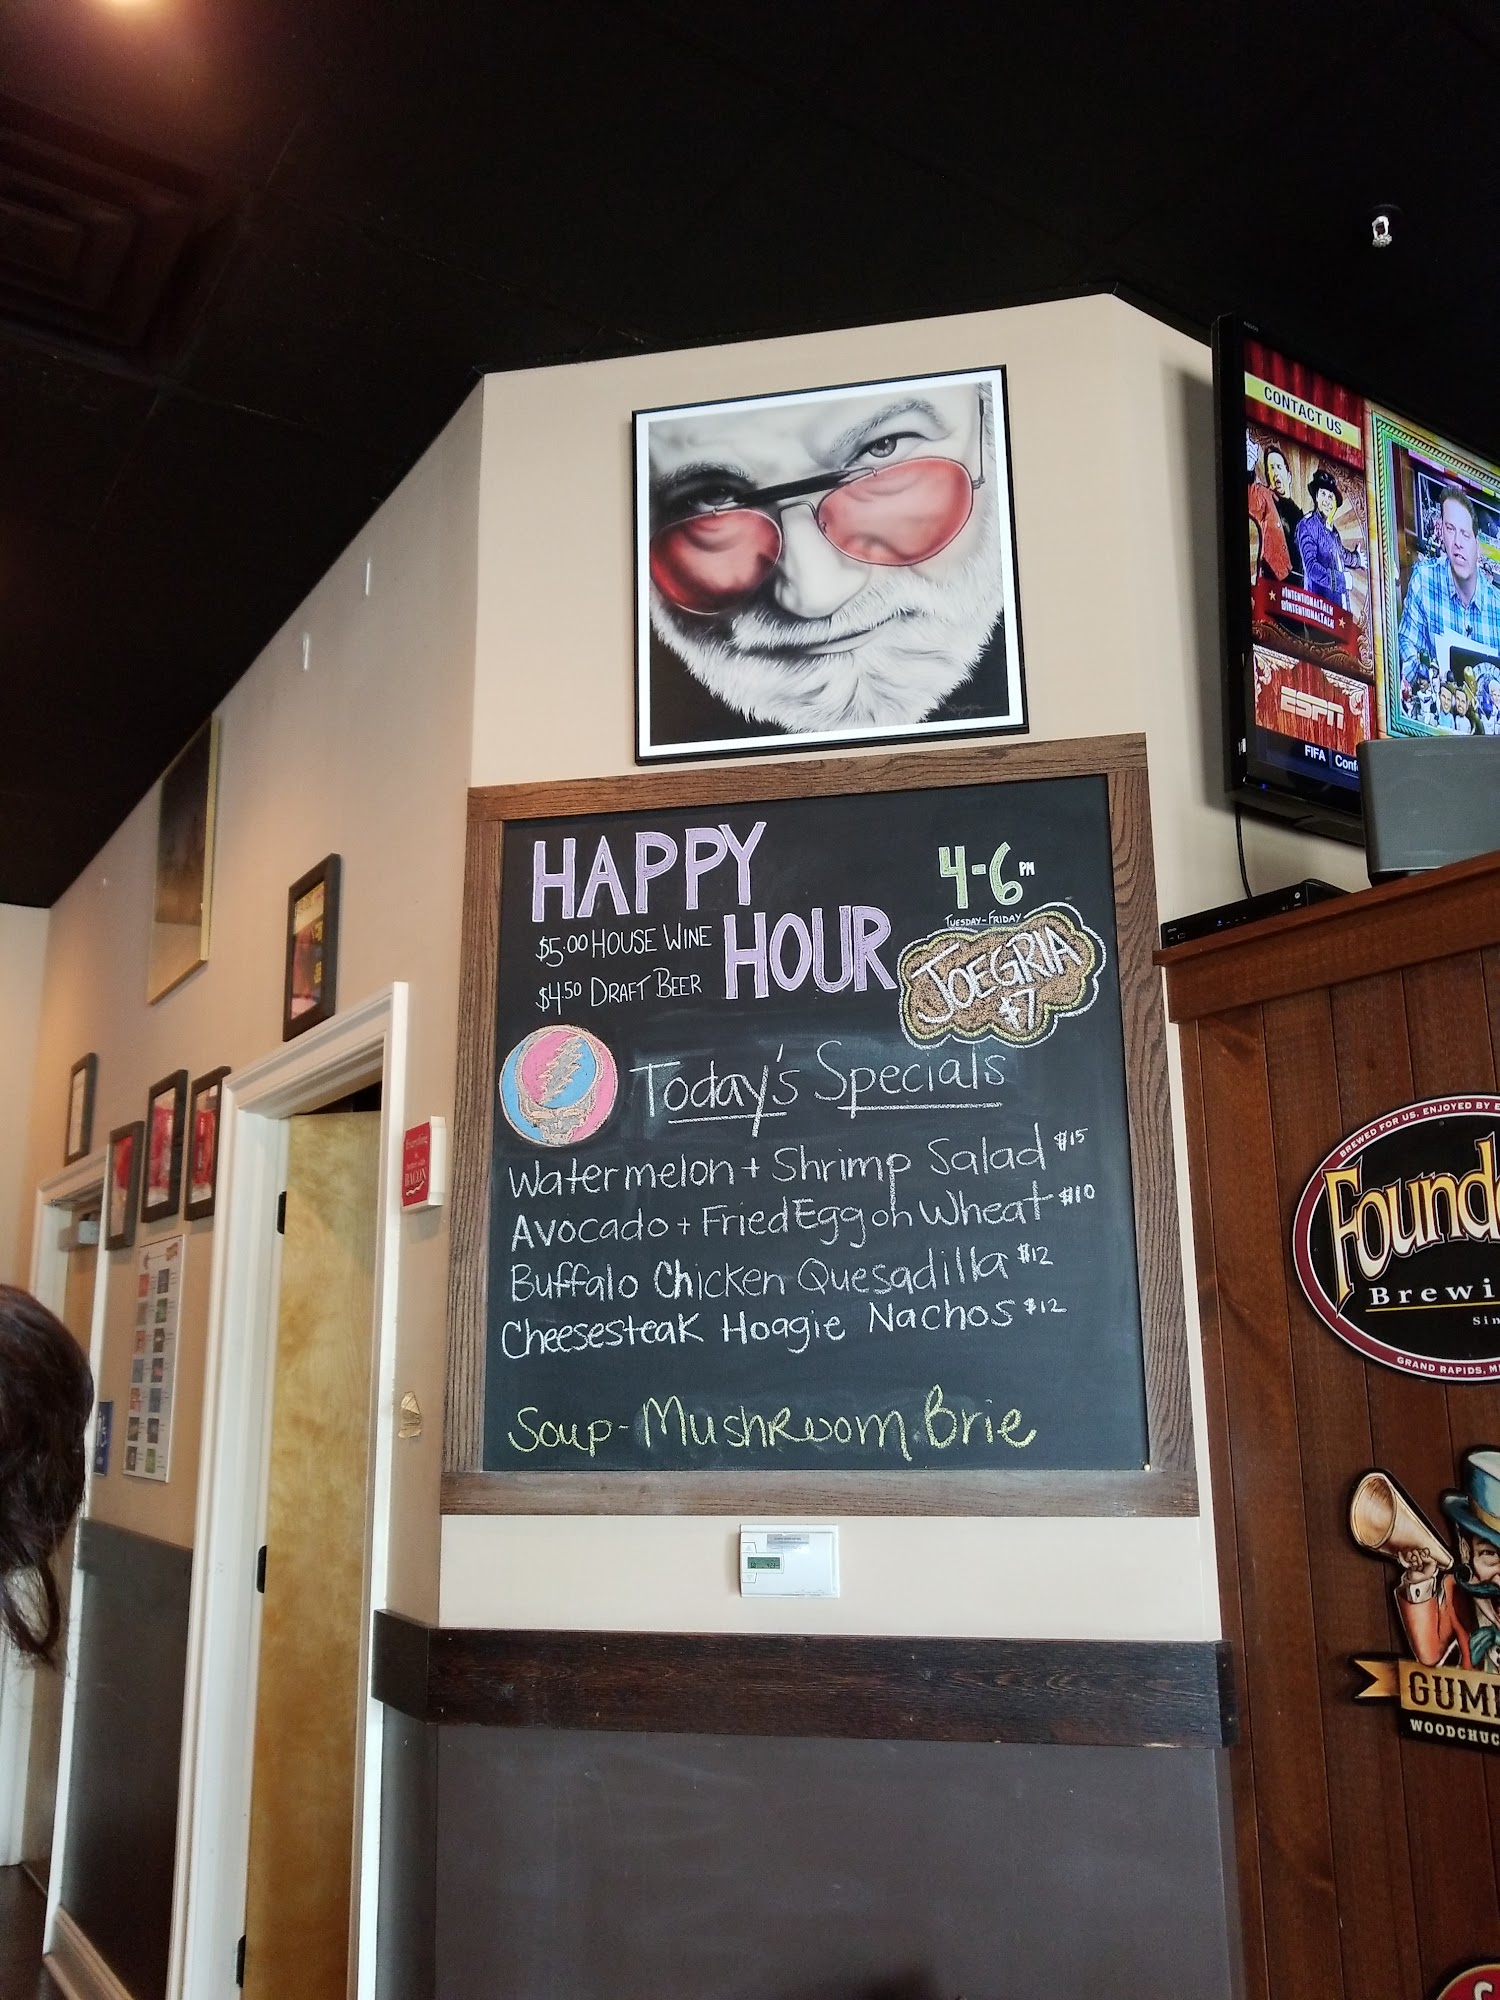 CONTACT US
#INTENTIONALTALK
@INTENTIONALTALK
ESPN
FIFA
HAPPY
HOUR
4-6 PM
TUESDAY-FRIDAY
$5.00 HOUSE WINE
$4.50 DRAFT BEER
JOEGRIA
$7
Today's Specials
Watermelon + Shrimp Salad $15
Avocado + Fried Egg on Wheat $10
Buffalo Chicken Quesadilla $12
Cheesesteak Hoagie Nachos $12
Soup - Mushroom Brie
BACON
BREWED FOR US, ENJOYED BY
Found
Brewi
Sin
GRAND RAPIDS, M
GUM
WOODCHUC